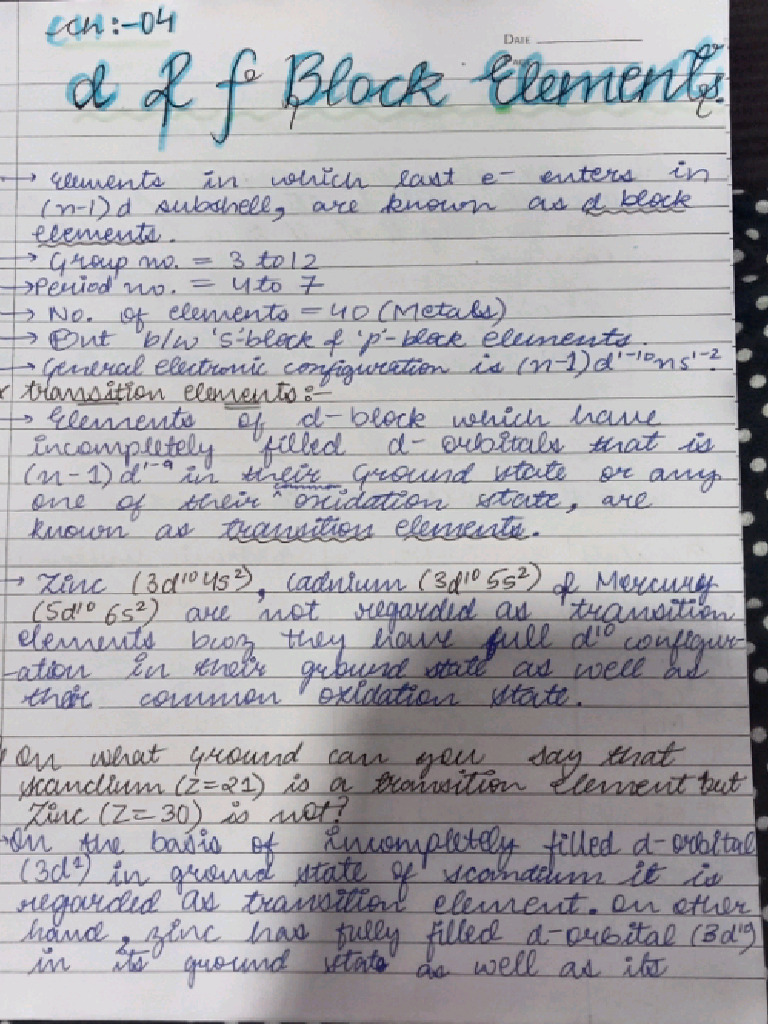 ch:-04
DATE
d & f Block Elements
→ Elements in which last e- enters in
(n-1)d subshell, are known as d block
elements.
→ Group no. = 3 to 12
→ Period no. = 4 to 7
→ No. of elements = 40 (Metals)
→ Put b/w 's'-block & 'p'-block elements.
→ General electronic configuration is (n-1)d¹⁻¹⁰ns¹⁻².
transition elements:-
→ Elements of d-block which have
incompletely filled d-orbitals that is
(n-1)d¹⁻⁹ in their Ground state or any
one of their oxidation state, are
known as transition elements.
→ Zinc (3d¹⁰4s²), Cadnium (3d¹⁰ 5s²) & Mercury
(5d¹⁰ 6s²) are not regarded as transition
elements bcoz they have full d¹⁰ configur-
-ation in their ground state as well as
their common oxidation state.
On what ground can you say that
scandium (Z=21) is a transition element but
Zinc (Z=30) is not?
→ On the basis of incompletely filled d-orbital
(3d¹) in ground state of scandium it is
regarded as transition element. On other
hand, zinc has fully filled d-orbital (3d¹⁰)
in its ground state as well as its